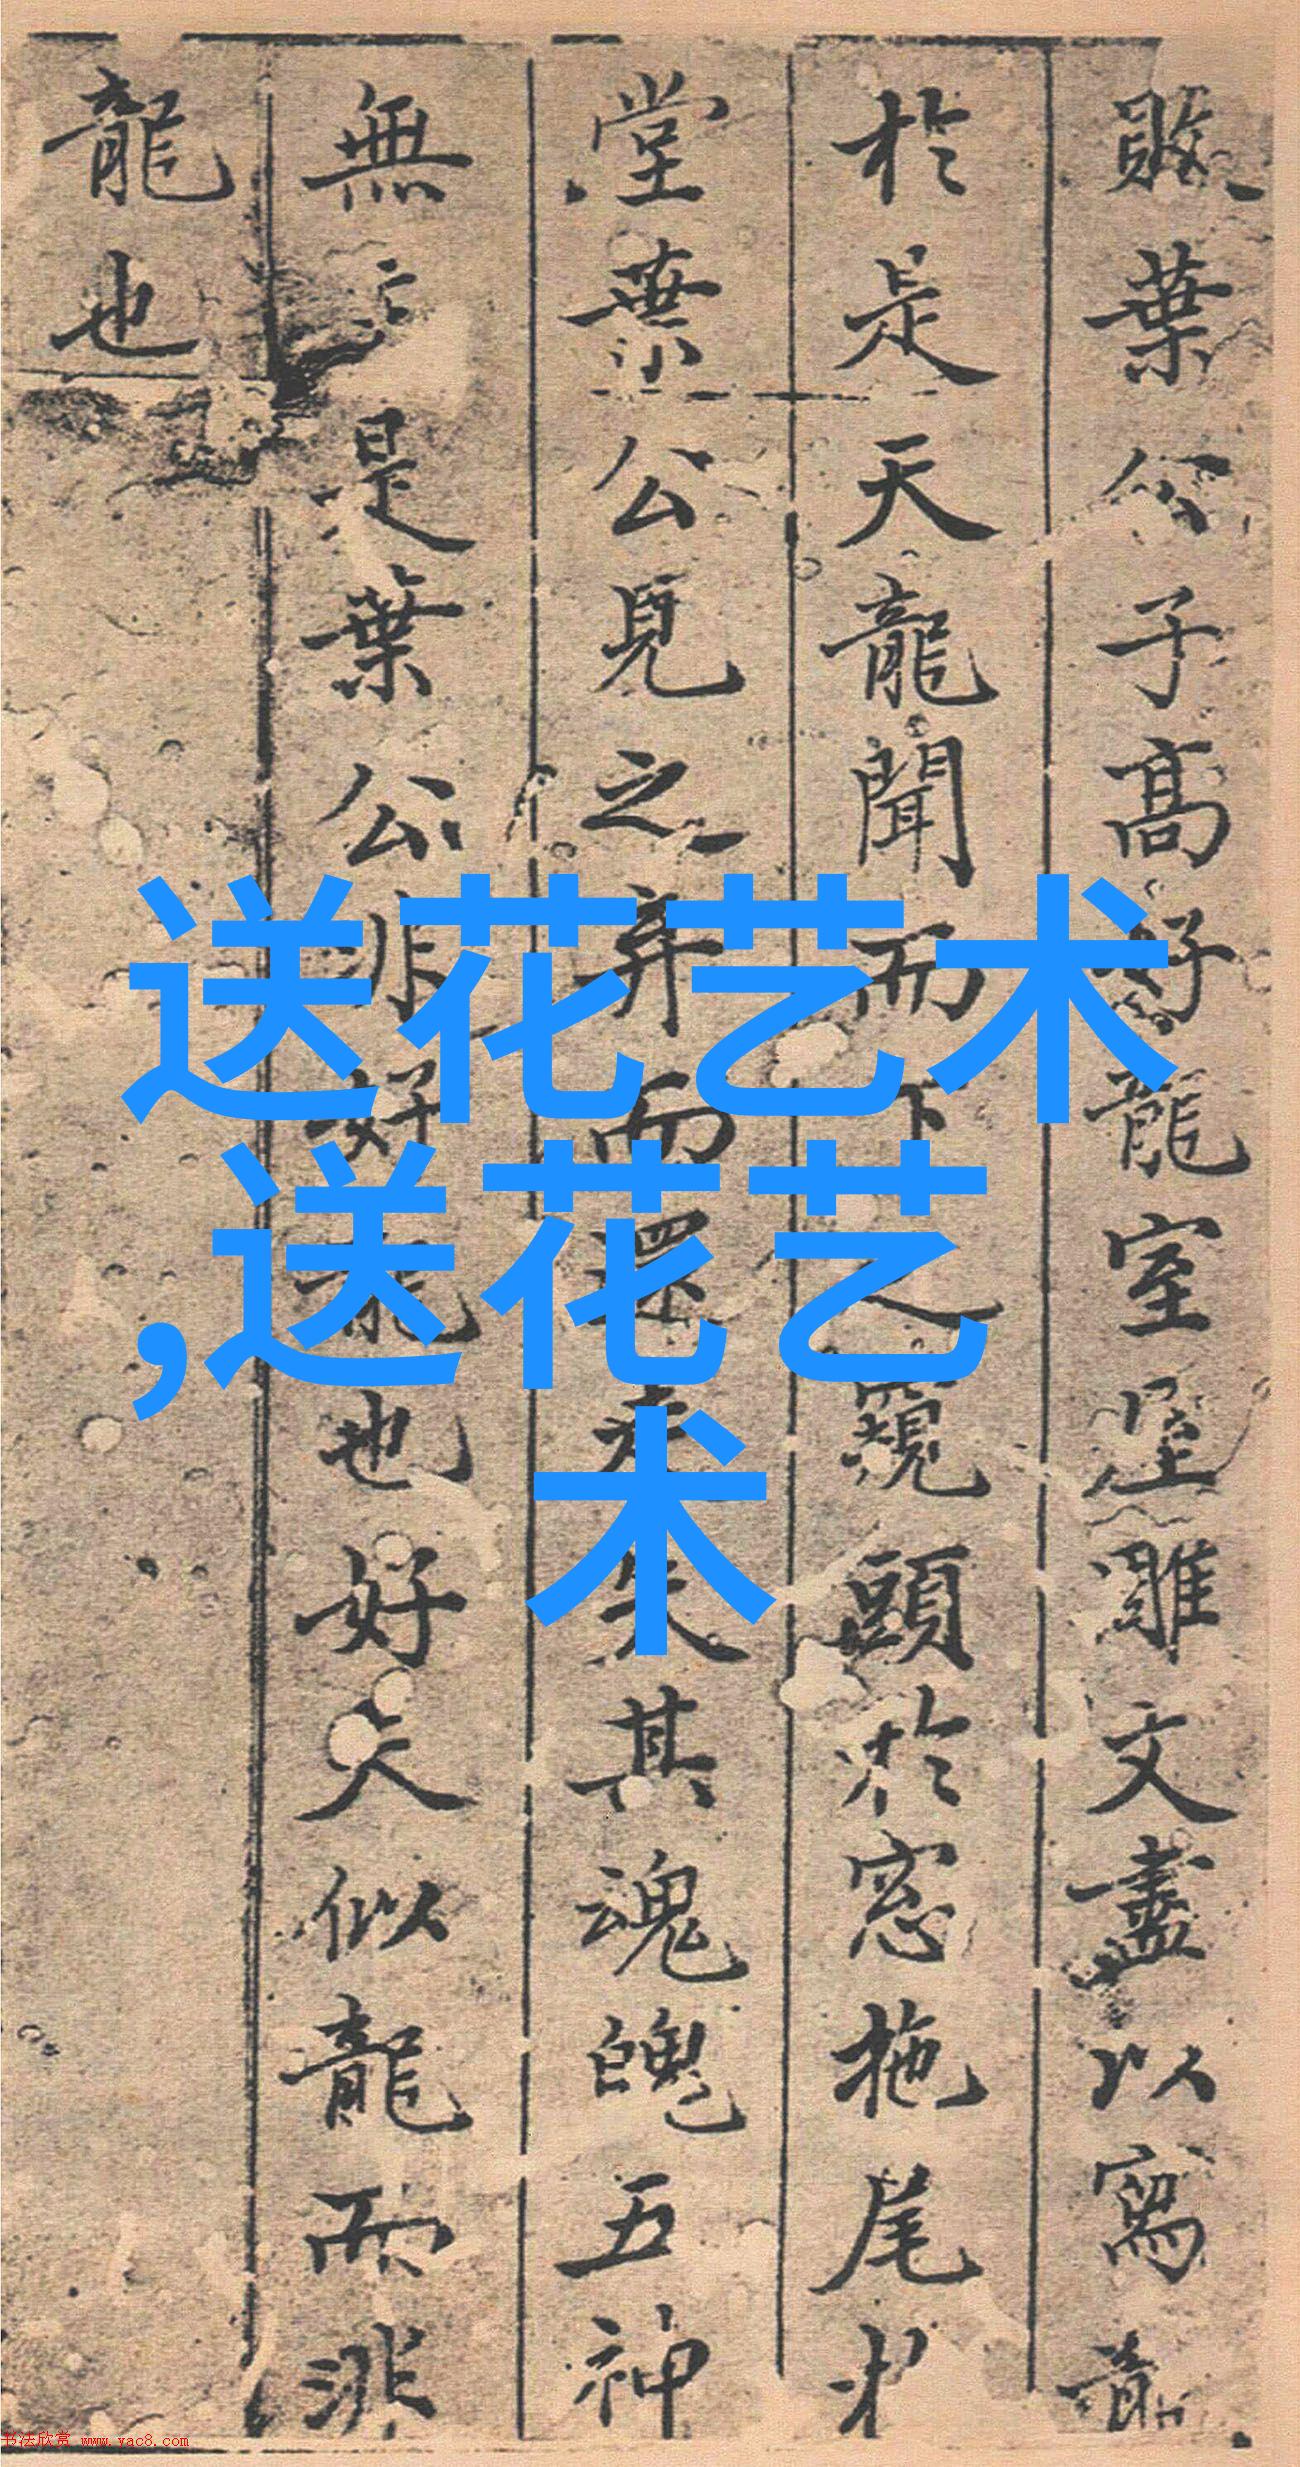 敗葉公子高好龍室屋雕文盡以寫龍
於是天龍聞而下之窺頭於窓拖尾於
堂葉公見之弃而還走失其魂魄五神
無主是葉公非好龍也好夫似龍而非
龍也
送花艺术
,送花艺
术
书法欣赏 www.yac8.com